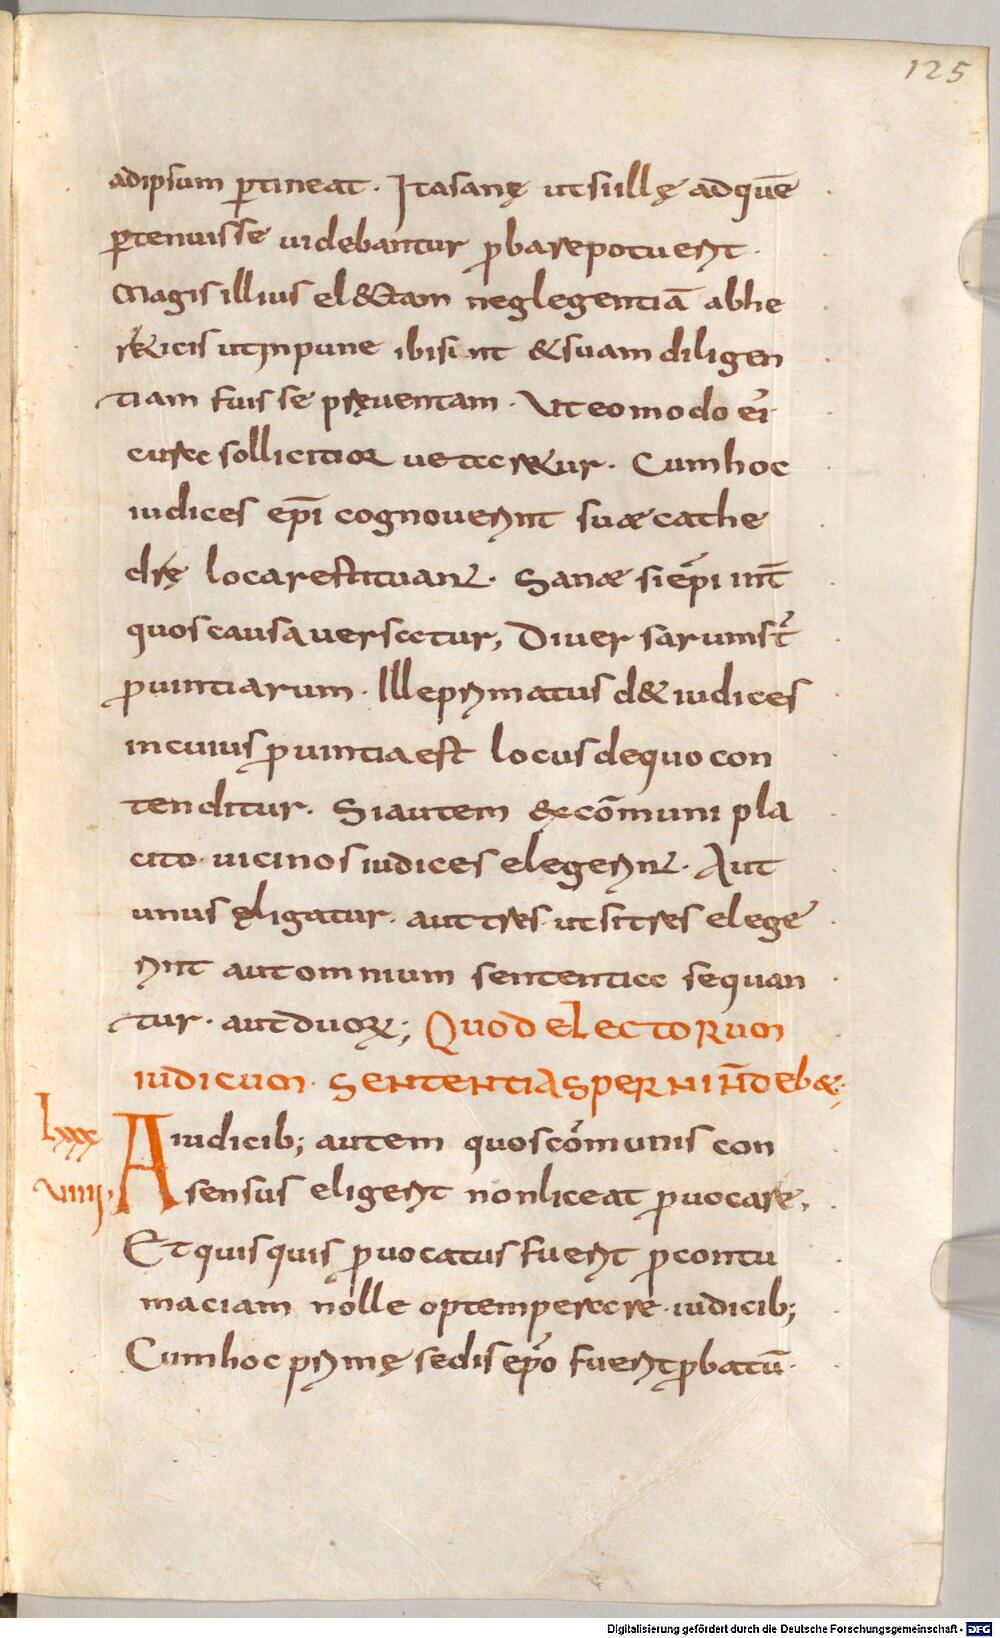 125
adipsum ꝑtineat. Itasanę utsiillę adquē
ꝑtenuisse uidebantur ꝓbarepotuerit.
Magisillius el&tam neglegentiā abhe
r&icis utinpune ibisint &suam diligen
tiam fuisse pręuentam. Uteomodo ei᾽
curae sollicitior uetaretur. Cumhoc
iudices epī cognouerint suæ cathe
drę locarestituant᷑. Sanæ siepi int̄
quoscausauersatur, Diuersarumst᷑
ꝓuintiarum. Illeprimatus d&iudices
incuius ꝓuintiaest locusdequocon
tenditur. Siautem excōmuni pla
cito. uicinosiudices elegerint᷑. Aut
unus ęligatur. auttres. utsitres elege
rintautomnium sententiae sequan
tur. autduorꝝ; Quod electorum
iudicum. sententia sperni n̄ debæ;
lxxx
uiiii. Aiudicib; autem quoscōmunis con
sensus eligerit nonliceat ꝓuocare,
Etquisquis ꝓuocatus fuerit ꝑcontu
maciam nolle optemperare iudicib;
Cumhoc primę sedis epo fueritꝓbatū.
Digitalisierung gefördert durch die Deutsche Forschungsgemeinschaft - DFG